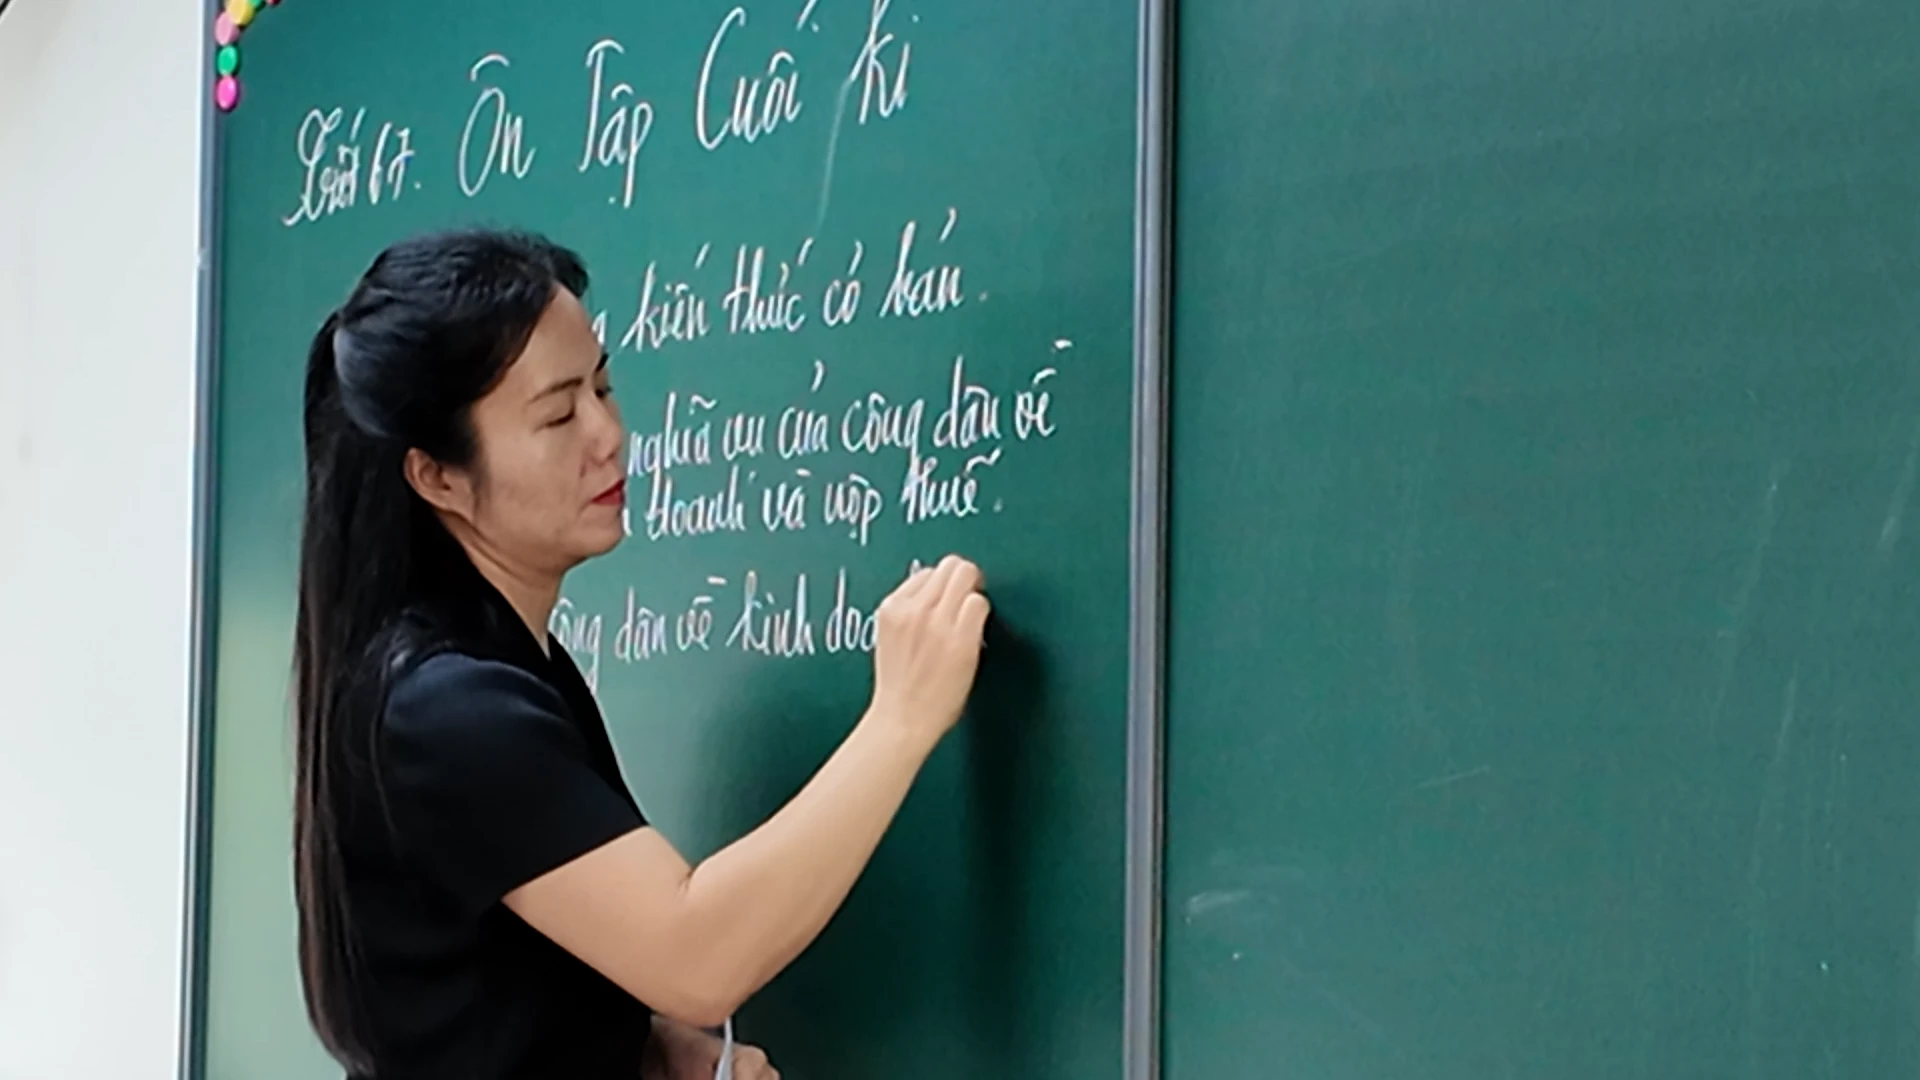 Tiết 67. Ôn Tập Cuối kì
kiến thức cơ bản.
nghĩa vụ của công dân về
doanh và nộp thuế.
công dân về kinh